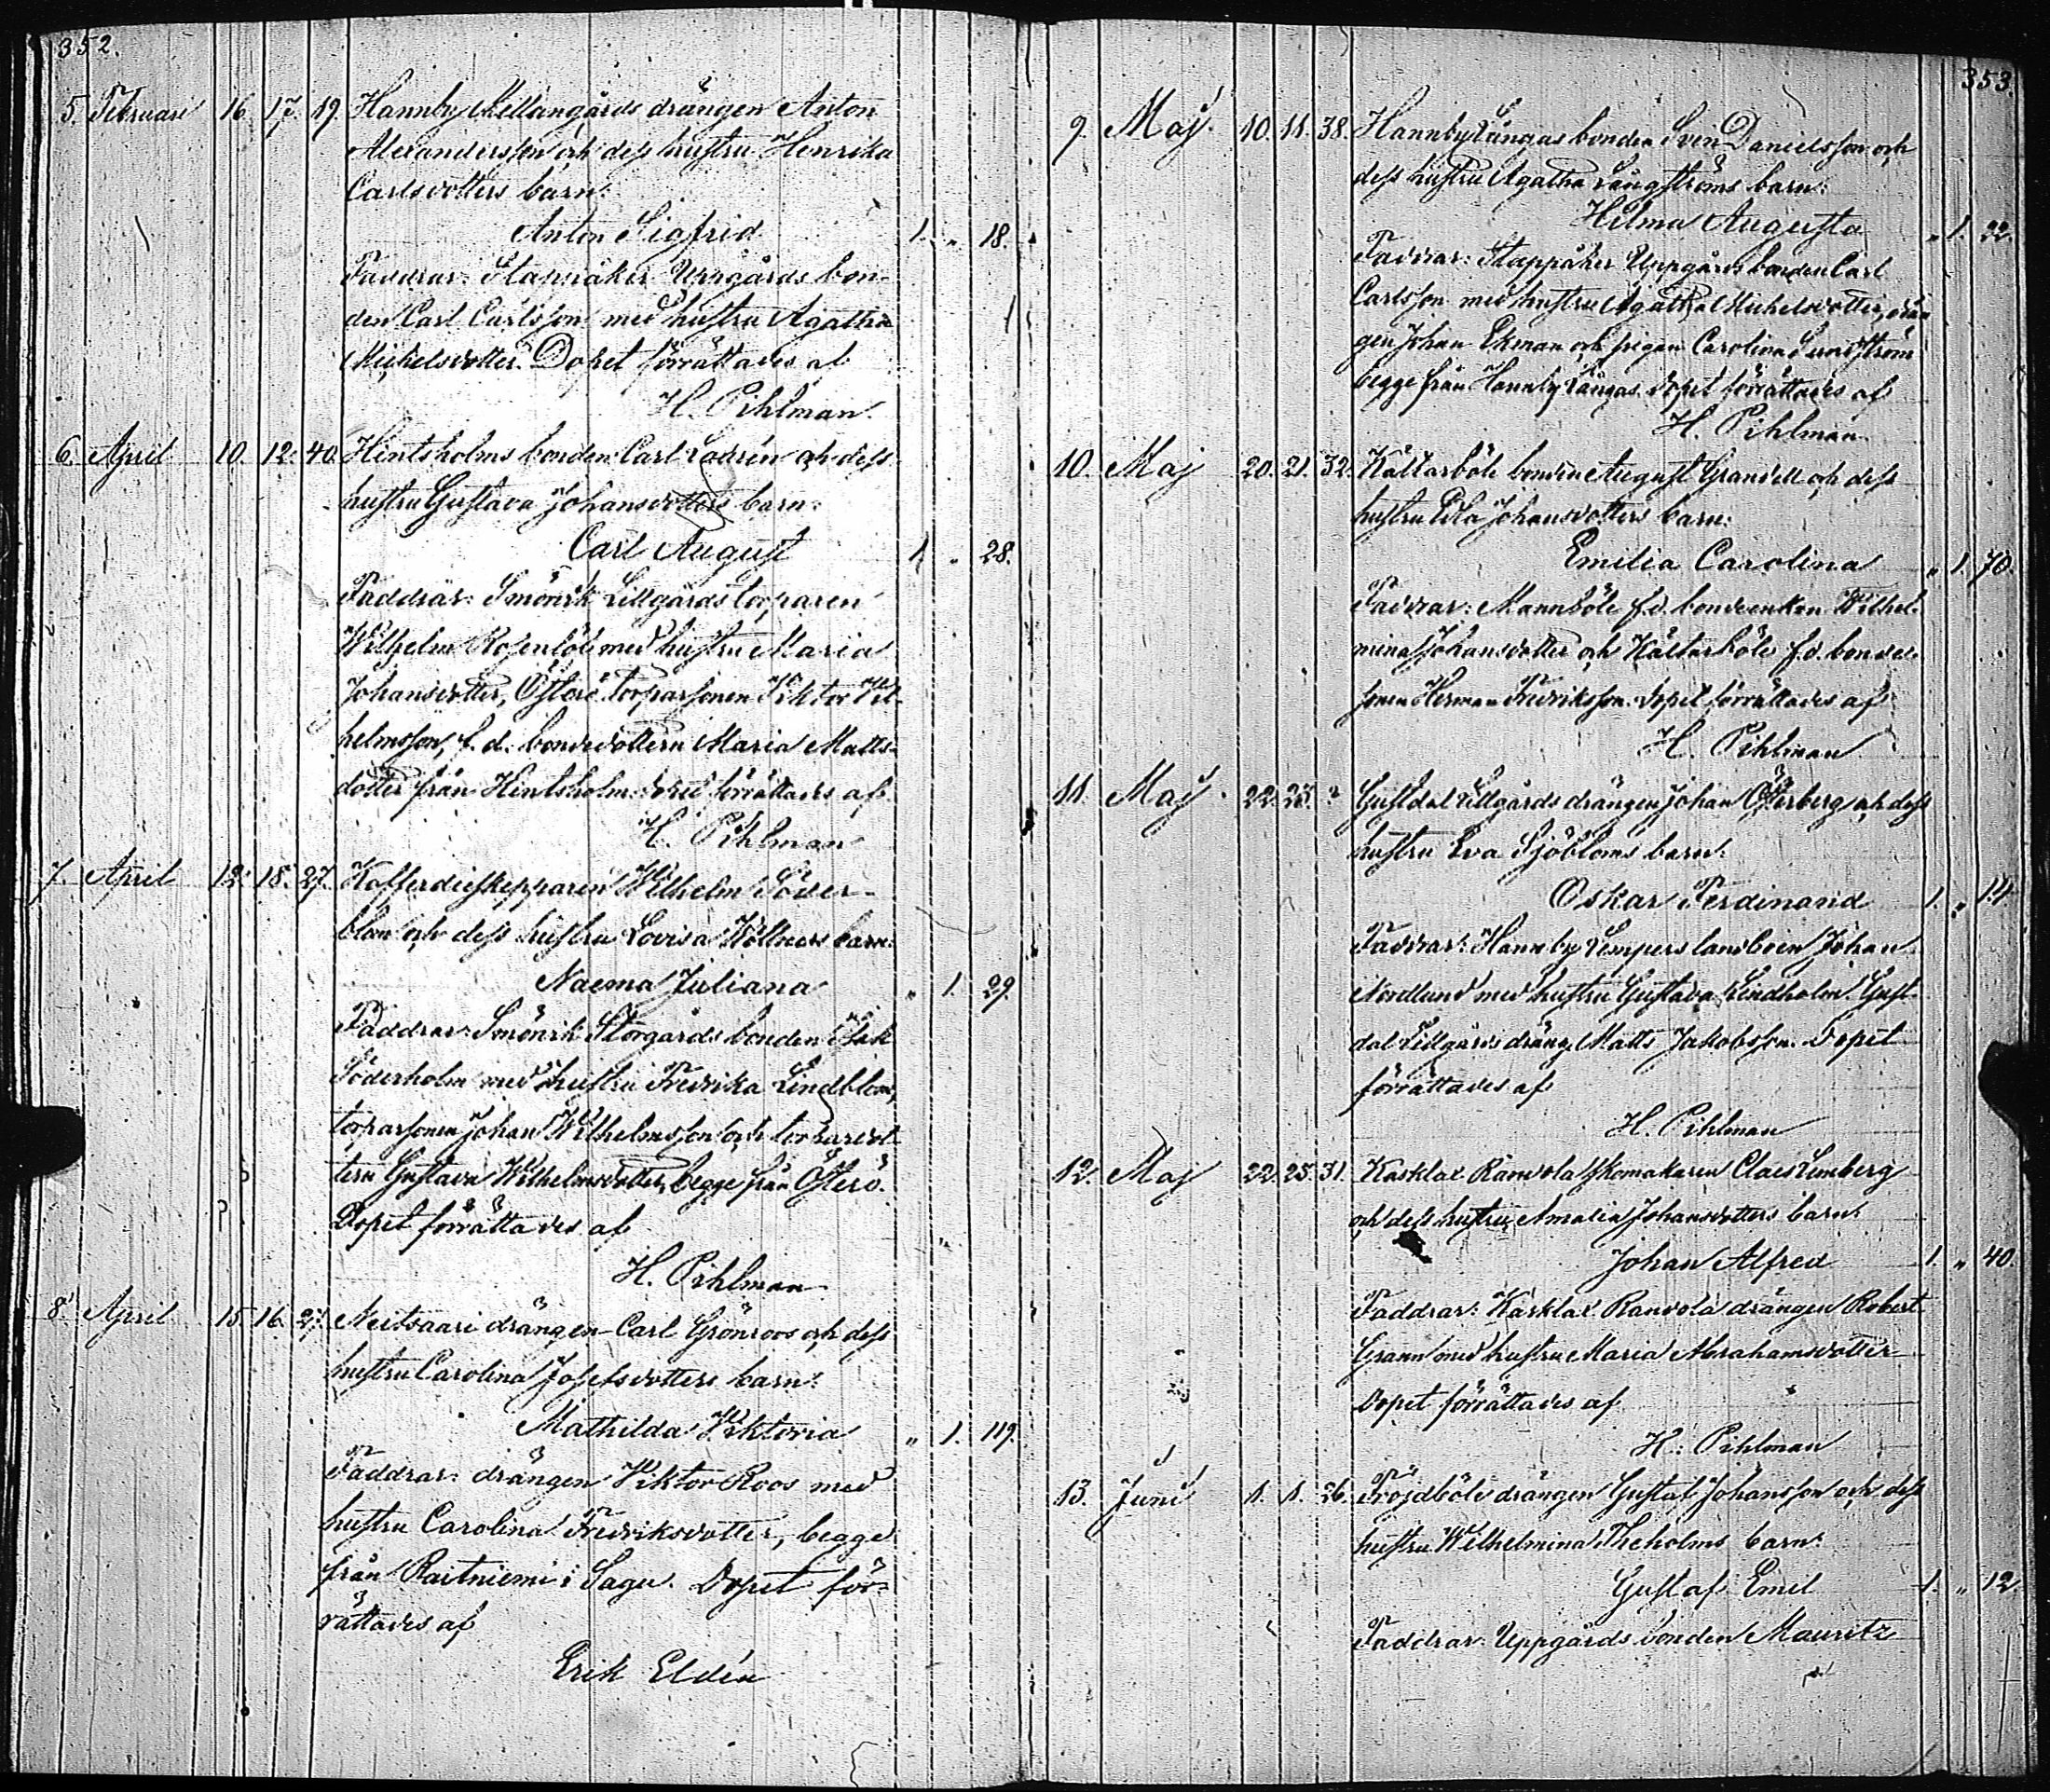 352.
5. Februari 16. 17. 19. Hannby Mellangårds drängen Anton
Alexandersson och dess hustru Henrika
Carlsdotters barn:
Anton Sigfrid 1. „ 18.
Faddrar: Stappåker Uppgårds bon-
den Carl Carlsson med hustru Agatha
Michelsdotter. Dopet förrättades af
H. Pihlman.
6. April 10. 12. 40. Hintsholms bonden Carl Lodén och dess
hustru Gustava Johansdotters barn:
Carl August 1 „ 28.
Faddrar: Smönsk Lillgårds torparen
Wilhelm Rosenlöf med hustru Maria
Johansdotter, Österö torparsonen Viktor Wil-
helmsson, f. d. bondedottern Maria Matts-
dotter från Hintsholm. Dopet förrättades af
H. Pihlman
7. April 12. 18. 27. Kofferdieskepparen Wilhelm Söder-
blom och dess hustru Lovisa Wöllners barn:
Naema Juliana „ 1. 29.
Faddrar: Smönsk Storgårds bonden Isak
Söderholm med hustru Fredrika Lindblom,
torparsonen Johan Wilhelmsson och torparedot-
tern Gustava Wilhelmsdotter, begge från Österö.
Dopet förrättades af
H. Pihlman
8. April 15. 16. 27. Neitsaari drängen Carl Grönroos och dess
hustru Carolina Josefsdotters barn:
Mathilda Viktoria „ 1. 119.
Faddrar: drängen Viktor Roos med
hustru Carolina Fredriksdotter, begge
från Raitniemi i Sagu. Dopet för-
rättades af
Erik Eldén
353.
9. Maj. 10. 11. 38. Hannby Långas bonden Sven Danielsson och
dess hustru Agatha Långströms barn:
Hilma Augusta „ 1. 22.
Faddrar: Stappåker Uppgårds bonden Carl
Carlsson med hustru Agatha Michelsdotter, drän
gen Johan Ekman och pigan Carolina Sundström
begge från Hannby Långas. Dopet förrättades af
H. Pihlman
10. Maj 20. 21. 32. Kältarböle bonden August Grandell och dess
hustru Eva Johansdotters barn:
Emilia Carolina „ 1. 70.
Faddrar: Mannböle f.d. bondeenkan Wilhel-
mina Johansdotter och Kältarböle f.d. bonde-
sonen Herman Fredriksson. Dopet förrättades af
H. Pihlman
11. Maj. 22. 23. ? Gustdal Lillgårds drängen Johan Österberg och dess
hustru Eva Sjöbloms barn:
Oskar Ferdinand 1. „ 14.
Faddrar: Hannby Kempers landboen Johan
Nordlund med hustru Gustava Lindholm. Gust-
dal Lillgårds dräng Matts Jakobsson. Dopet
förrättades af
H. Pihlman
12. Maj 22. 25. 31. Kärklax Ramvola skomakaren Claes Limberg
och dess hustru Amalia Johansdotters barn:
Johan Alfred 1. „ 40.
Faddrar: Kärklax Ranvola drängen Robert
Grann med hustru Maria Abrahamsdotter
Dopet förrättades af
H. Pihlman
13. Juni 1. 1. 26. Fröjdböle drängen Gustaf Johansson och dess
hustru Wilhelmina Ekholms barn:
Gustaf Emil 1. „ 12.
Faddrar: Uppgårds bonden Mauritz